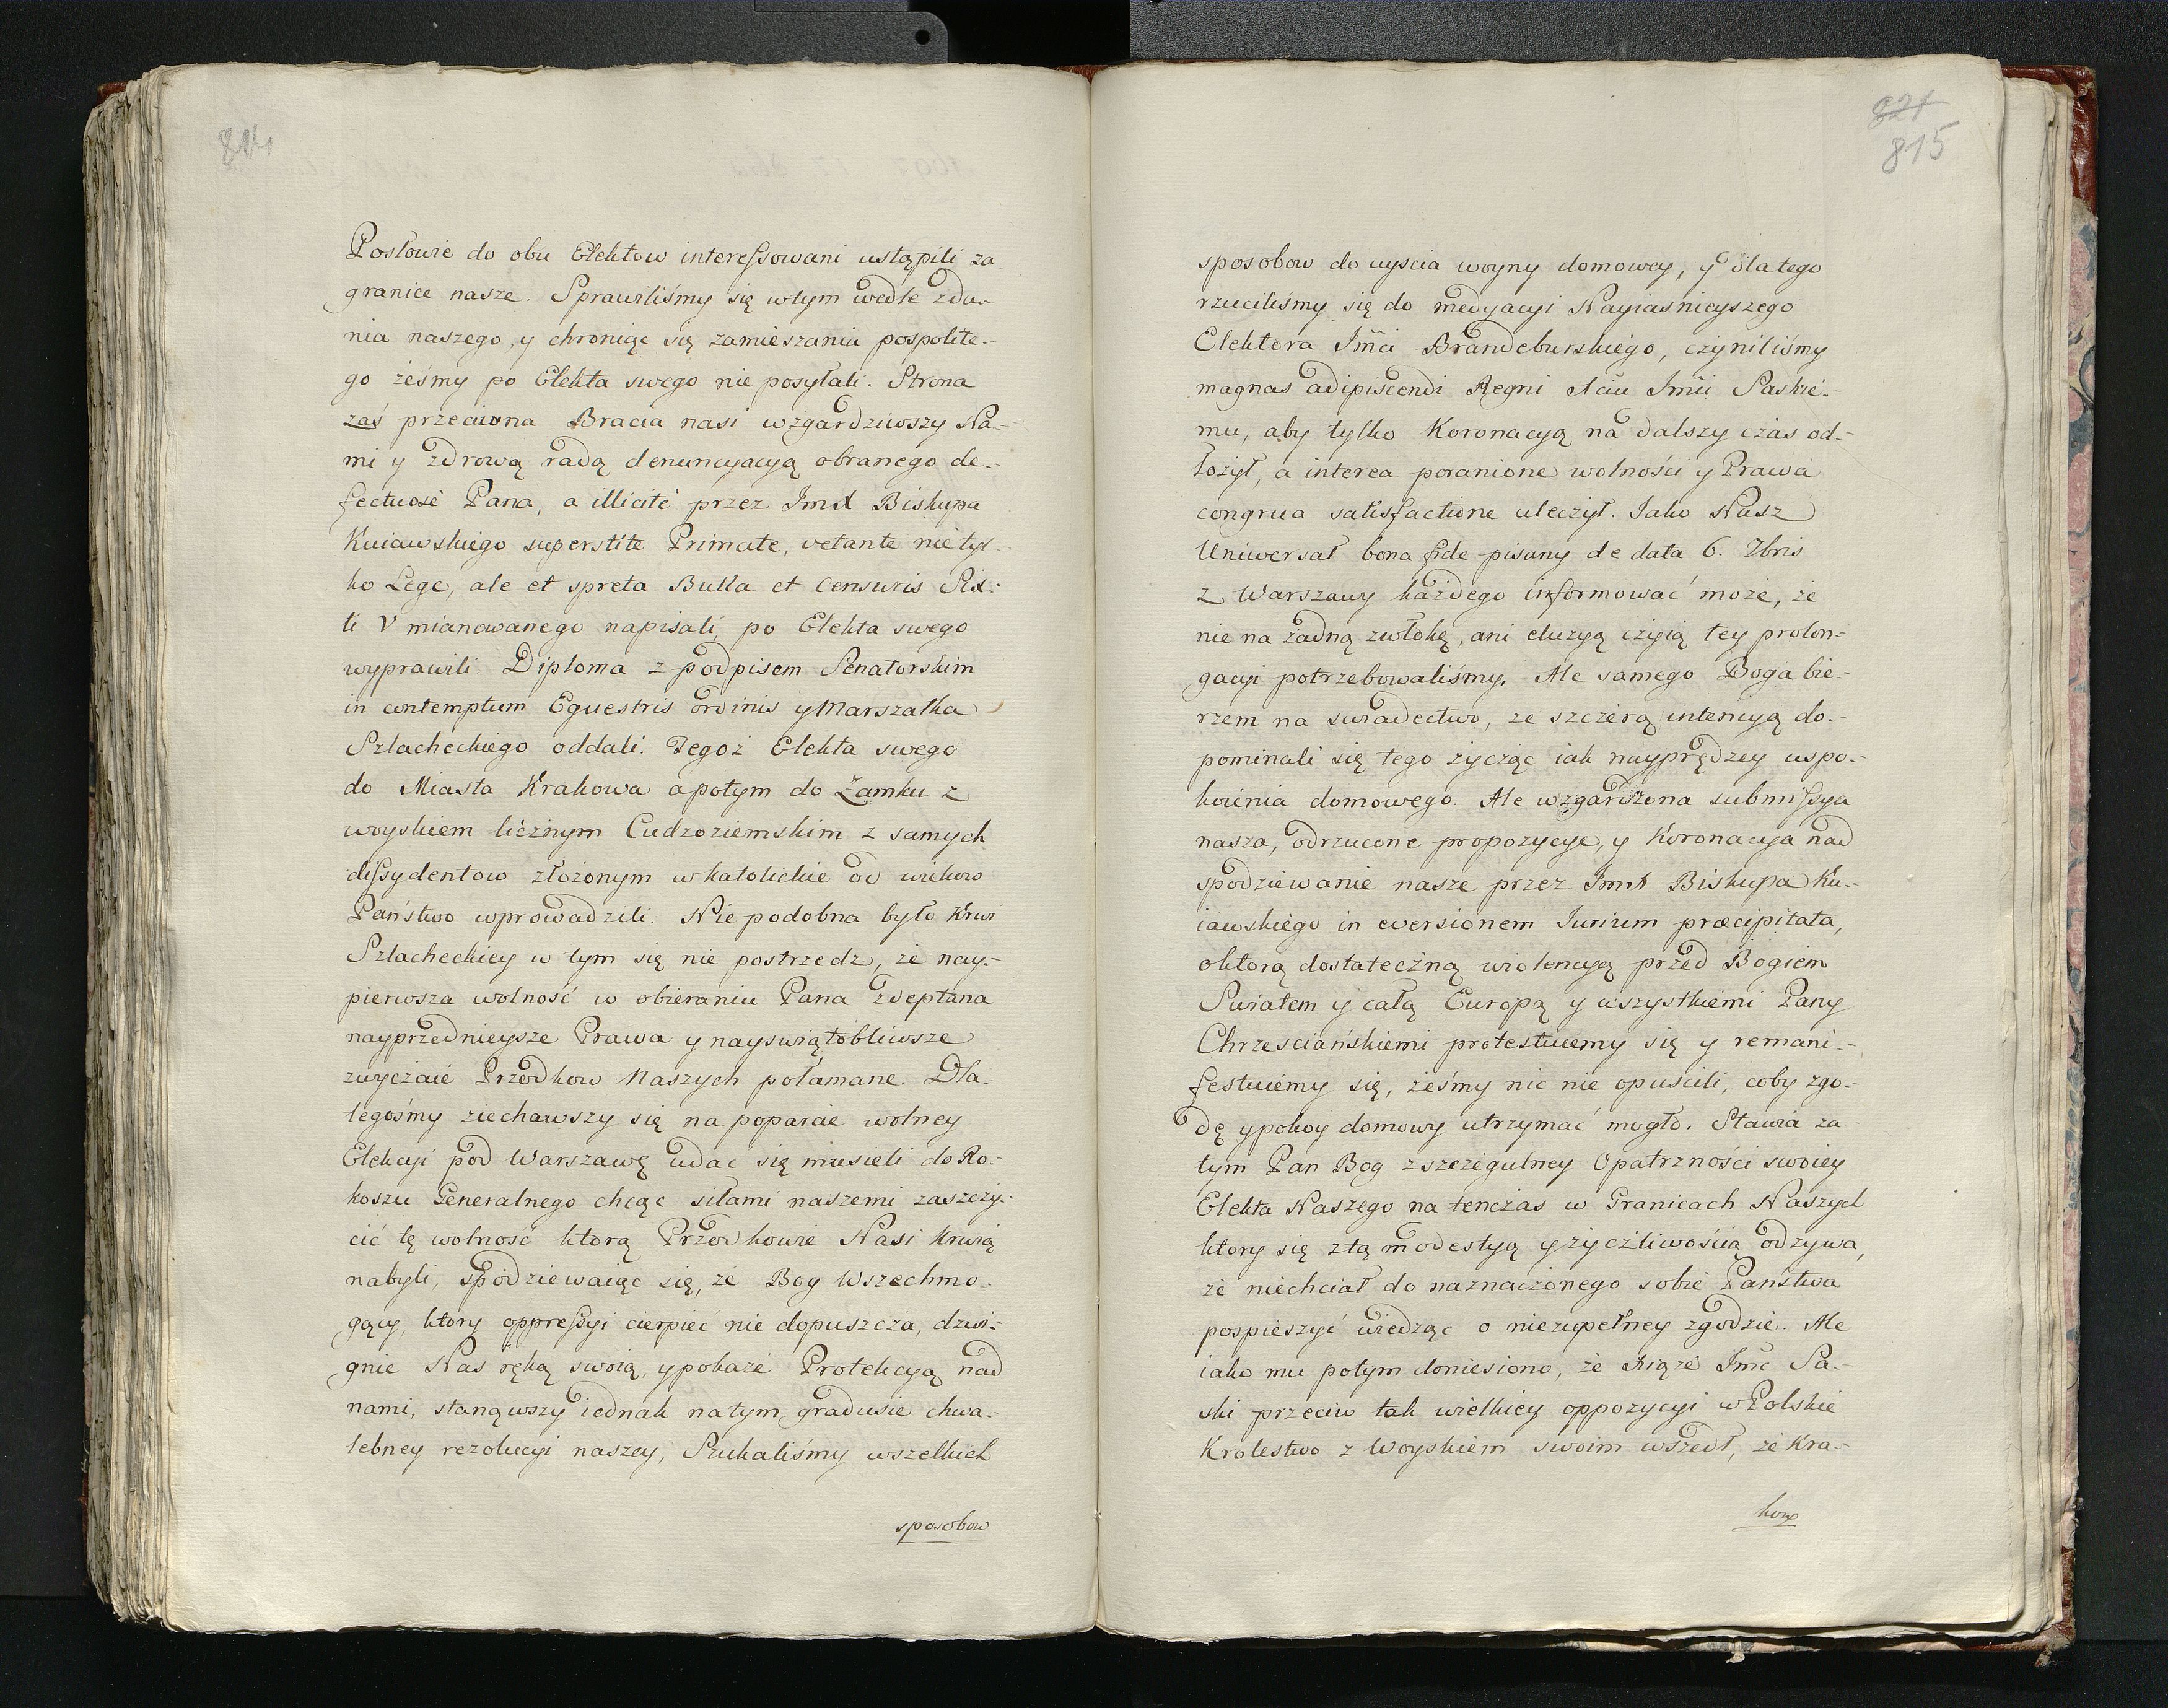 814
Posłowie do obu Elektow interessowani ustąpili za
granice nasze. Sprawiliśmy się w tym wedle zda-
nia naszego, y chroniąc się zamieszania pospolite-
go żeśmy po Elekta swego nie posyłali. Strona
zaś przeciwna Bracia nasi wzgardziwszy Na-
mi y zdrową radą denuncyacyą obranego de-
fectuose Pana, a illicitè przez ImX Biskupa
Kuiawskiego superstite Primate, vetante nie tyl-
ko Lege, ale et spreta Bulla et Censuris Six-
ti V mianowanego napisali, po Elekta swego
wyprawili. Diploma z podpisem Senatorskim
in contemptum Equestris ordinis y Marszałka
Szlacheckiego oddali. Tegoż Elekta swego
do Miasta Krakowa a potym do Zamku z
woyskiem licznym Cudzoziemskim z samych
dissydentow złożonym w katolickie od wiekow
Państwo wprowadzili. Nie podobna było Krwi
Szlacheckiey w tym się nie postrzedz, że nay-
pierwsza wolność w obieraniu Pana zdeptana
nayprzednieysze Prawa y nayswiątobliwsze
zwyczaie Przodkow Naszych połamane. Dla-
tegośmy ziechawszy się na poparcie wolney
Elekcyi pod Warszawę udac się musieli do Ro-
koszu Generalnego chcąc siłami naszemi zaszczy-
cić tę wolność ktorą Przodkowie Nasi Krwią
nabyli, spodziewaiąc się, że Bog Wszechmo-
gący, ktory oppressyi cierpieć nie dopuszcza, dzwi-
gnie Nas ręką swoią, y pokaże Protekcyą nad
nami, stanąwszy iednak na tym gradusie chwa-
lebney rezolucyi naszey, Szukaliśmy wszelkich
sposobow
821
815
sposobow do uyscia woyny domowey, y dlatego
rzuciliśmy się do medyacyi Nayiasnieyszego
Elektora Jmci Brandeburskiego, czyniliśmy
magnas adipiscendi Regni Xciu Jmci Saskie-
mu, aby tylko Koronacyą na dalszy czas od-
łożył, a interea poranione wolności y Prawa
congrua satisfactione uleczył. Iako Nasz
Uniwersał bona fide pisany de data 6. 7bris
z Warszawy każdego informować może, że
nie na żadną zwłokę, ani eluzyą czyią tey prolon-
gacyi potrzebowaliśmy. Ale samego Boga bie-
rzem na swiadectwo, że szczerą intencyą do-
pominali się tego życząc iak nayprędzey uspo-
koienia domowego. Ale wzgardzona submissya
nasza, odrzucone propozycye, y Koronacya nad
spodziewanie nasze przez ImX Biskupa Ku-
iawskiego in eversionem Iurium præcipitata,
oktorą dostateczną wiolencyą przed Bogiem
Swiatem y całą Europą y wszystkiemi Pany
Chrzesciańskiemi protestuiemy się y remani-
festuiemy się, żeśmy nic nie opuścili, coby zgo-
dę y pokoy domowy utrzymać mogło. Stawia za
tym Pan Bog z szczegulney Opatrzności swoiey
Elekta Naszego na tenczas w Granicach Naszych
ktory się z tą modestyą y życzliwością odzywa,
że niechciał do naznaczonego sobie Państwa
pospieszyć wiedząc o niezupełney zgodzie. Ale
iako mu potym doniesiono, że Xiąże Jmc Sa-
ski przeciw tak wielkiey oppozycyi w Polskie
Krolestwo z Woyskiem swoim wszedł, że Kra-
kow